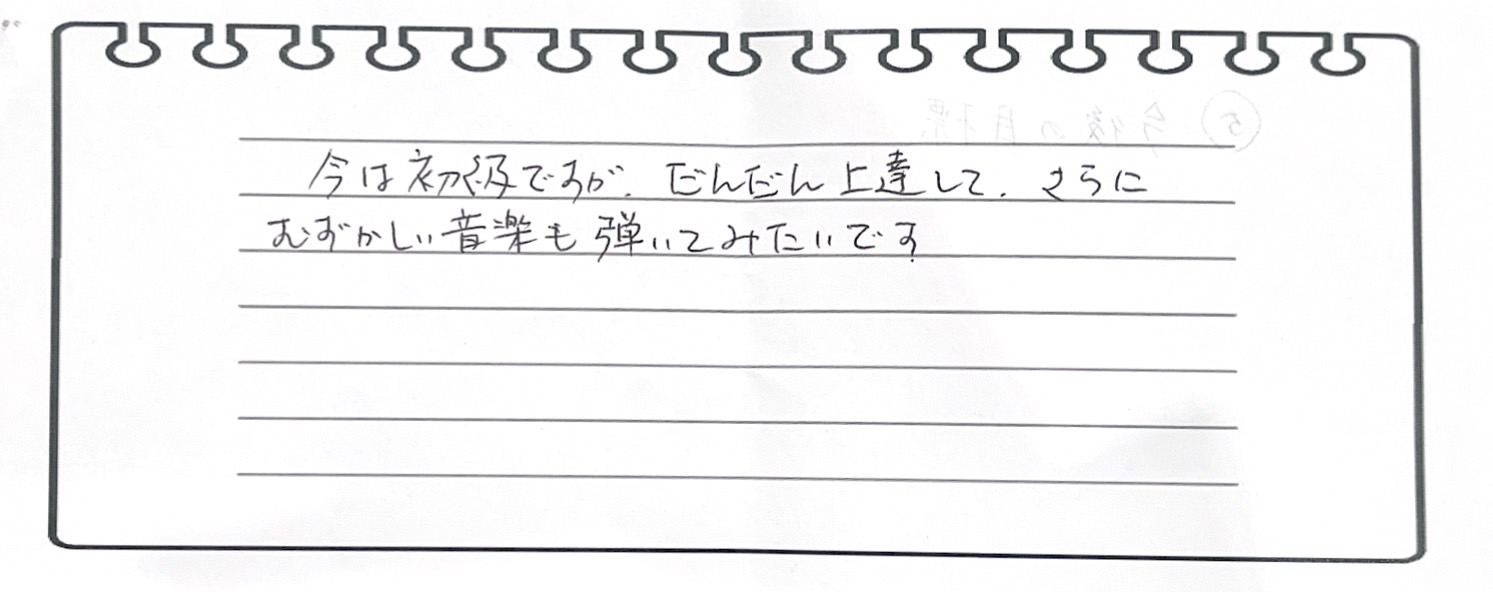 今は初級ですが、だんだん上達して、さらに
むずかしい音楽も弾いてみたいです